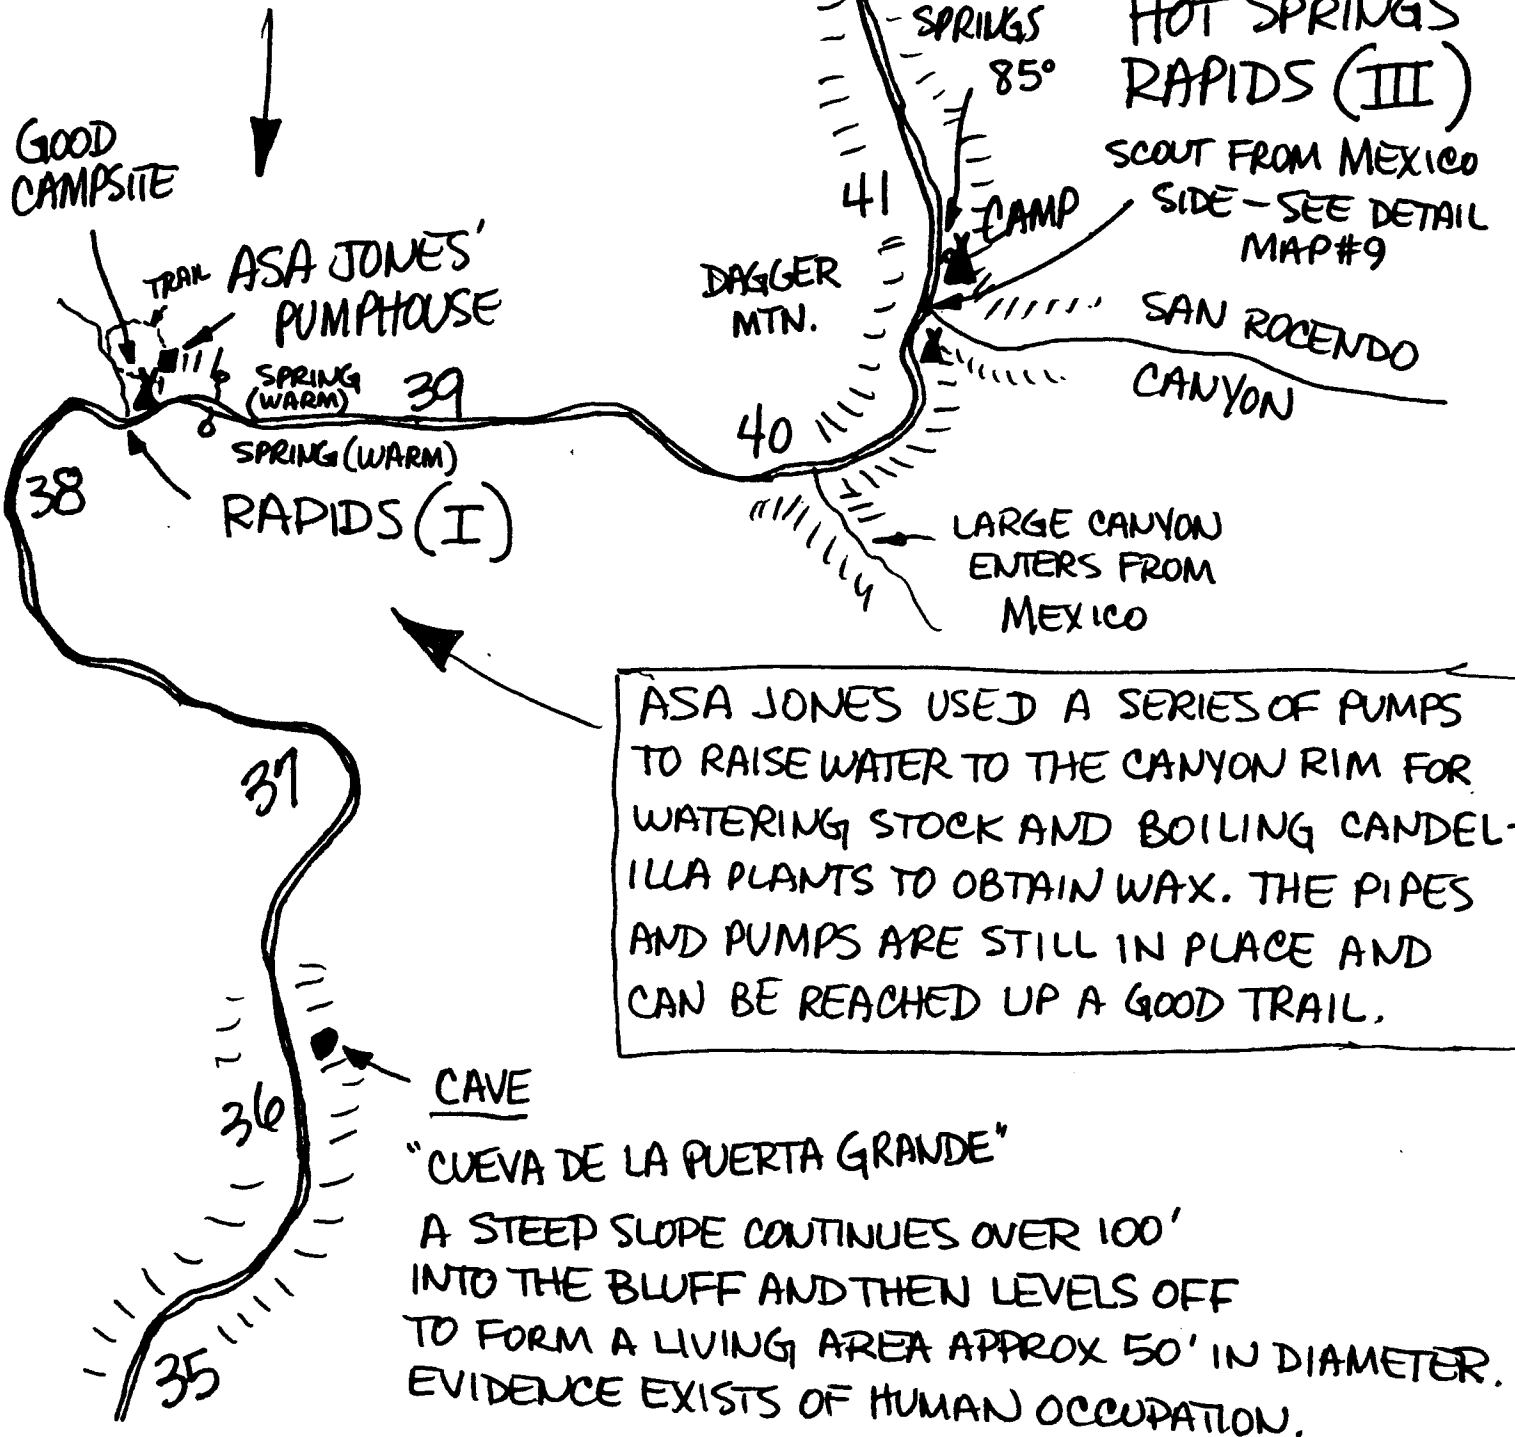 SPRINGS
85°
HOT SPRINGS
RAPIDS (III)
SCOUT FROM MEXICO
SIDE - SEE DETAIL
MAP #9
GOOD
CAMPSITE
TRAIL
ASA JONES'
PUMPHOUSE
SPRING
(WARM)
39
SPRING (WARM)
RAPIDS (I)
38
41
CAMP
DAGGER
MTN.
SAN ROCENDO
CANYON
40
LARGE CANYON
ENTERS FROM
MEXICO
37
ASA JONES USED A SERIES OF PUMPS
TO RAISE WATER TO THE CANYON RIM FOR
WATERING STOCK AND BOILING CANDEL-
ILLA PLANTS TO OBTAIN WAX. THE PIPES
AND PUMPS ARE STILL IN PLACE AND
CAN BE REACHED UP A GOOD TRAIL.
36
CAVE
"CUEVA DE LA PUERTA GRANDE"
A STEEP SLOPE CONTINUES OVER 100'
INTO THE BLUFF AND THEN LEVELS OFF
TO FORM A LIVING AREA APPROX 50' IN DIAMETER.
EVIDENCE EXISTS OF HUMAN OCCUPATION.
35